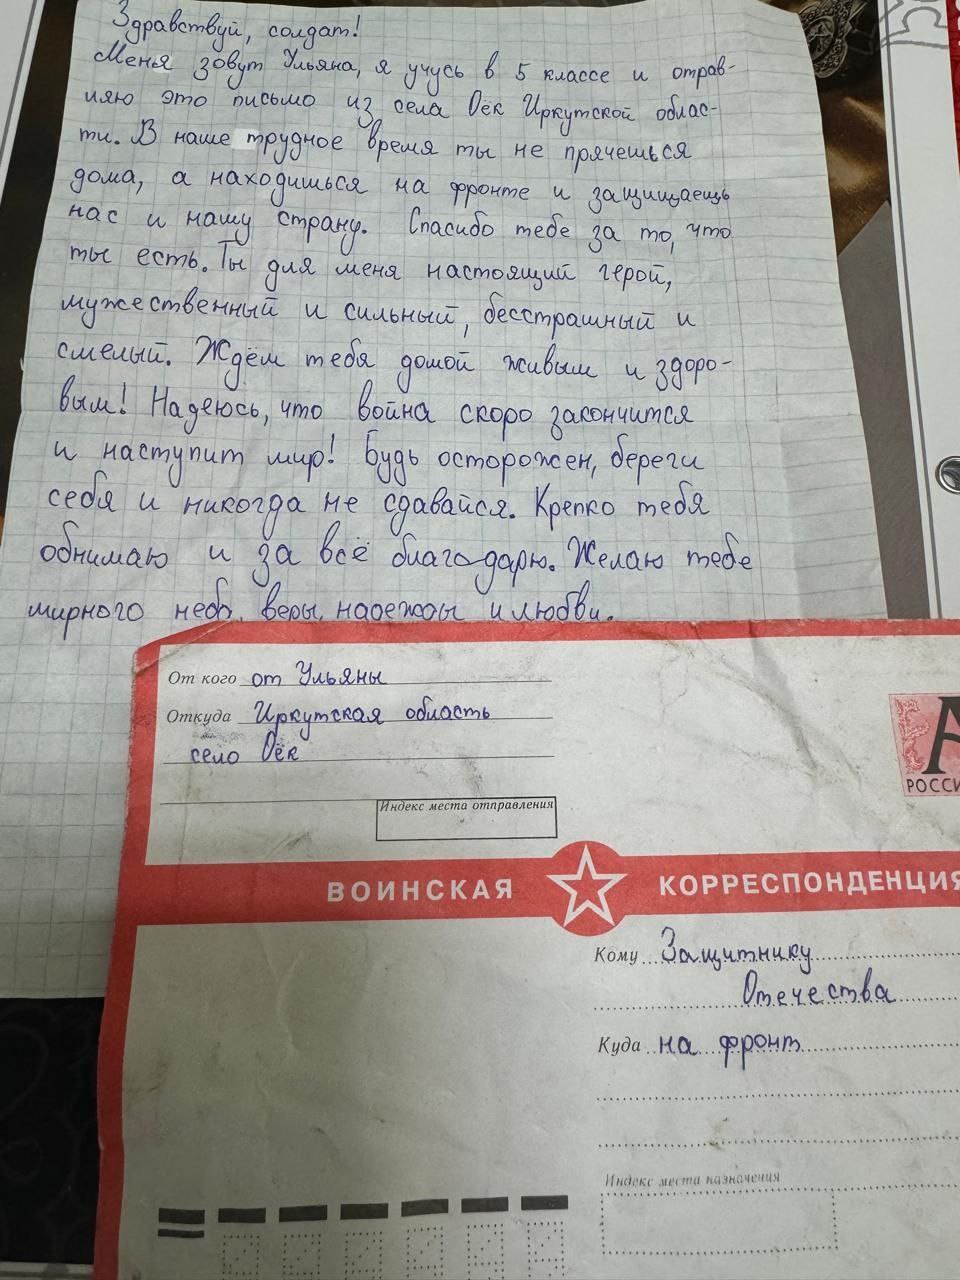 Здравствуй, солдат!
Меня зовут Ульяна, я учусь в 5 классе и отрав-
ляю это письмо из села Оёк Иркутской облас-
ти. В наше трудное время ты не прячешься
дома, а находишься на фронте и защищаещь
нас и нашу страну. Спасибо тебе за то, что
ты есть. Ты для меня настоящий герой,
мужественный и сильный, бесстрашный и
смелый. Ждём тебя домой живым и здоро-
вым! Надеюсь, что война скоро закончится
и наступит мир! Будь осторожен, береги
себя и никогда не сдавайся. Крепко тебя
обнимаю и за всё благодарю. Желаю тебе
мирного неб, веры, надежды и любви.
От кого от Ульяны
Откуда Иркутская область
село Оёк
Индекс места отправления
А
РОССИ
ВОИНСКАЯ КОРРЕСПОНДЕНЦИЯ
Кому Защитнику
Отечества
Куда на фронт
Индекс места назначения